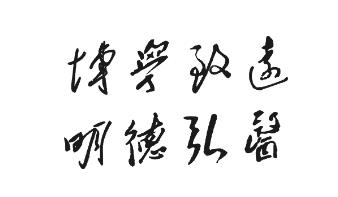 博學致遠
明德弘醫